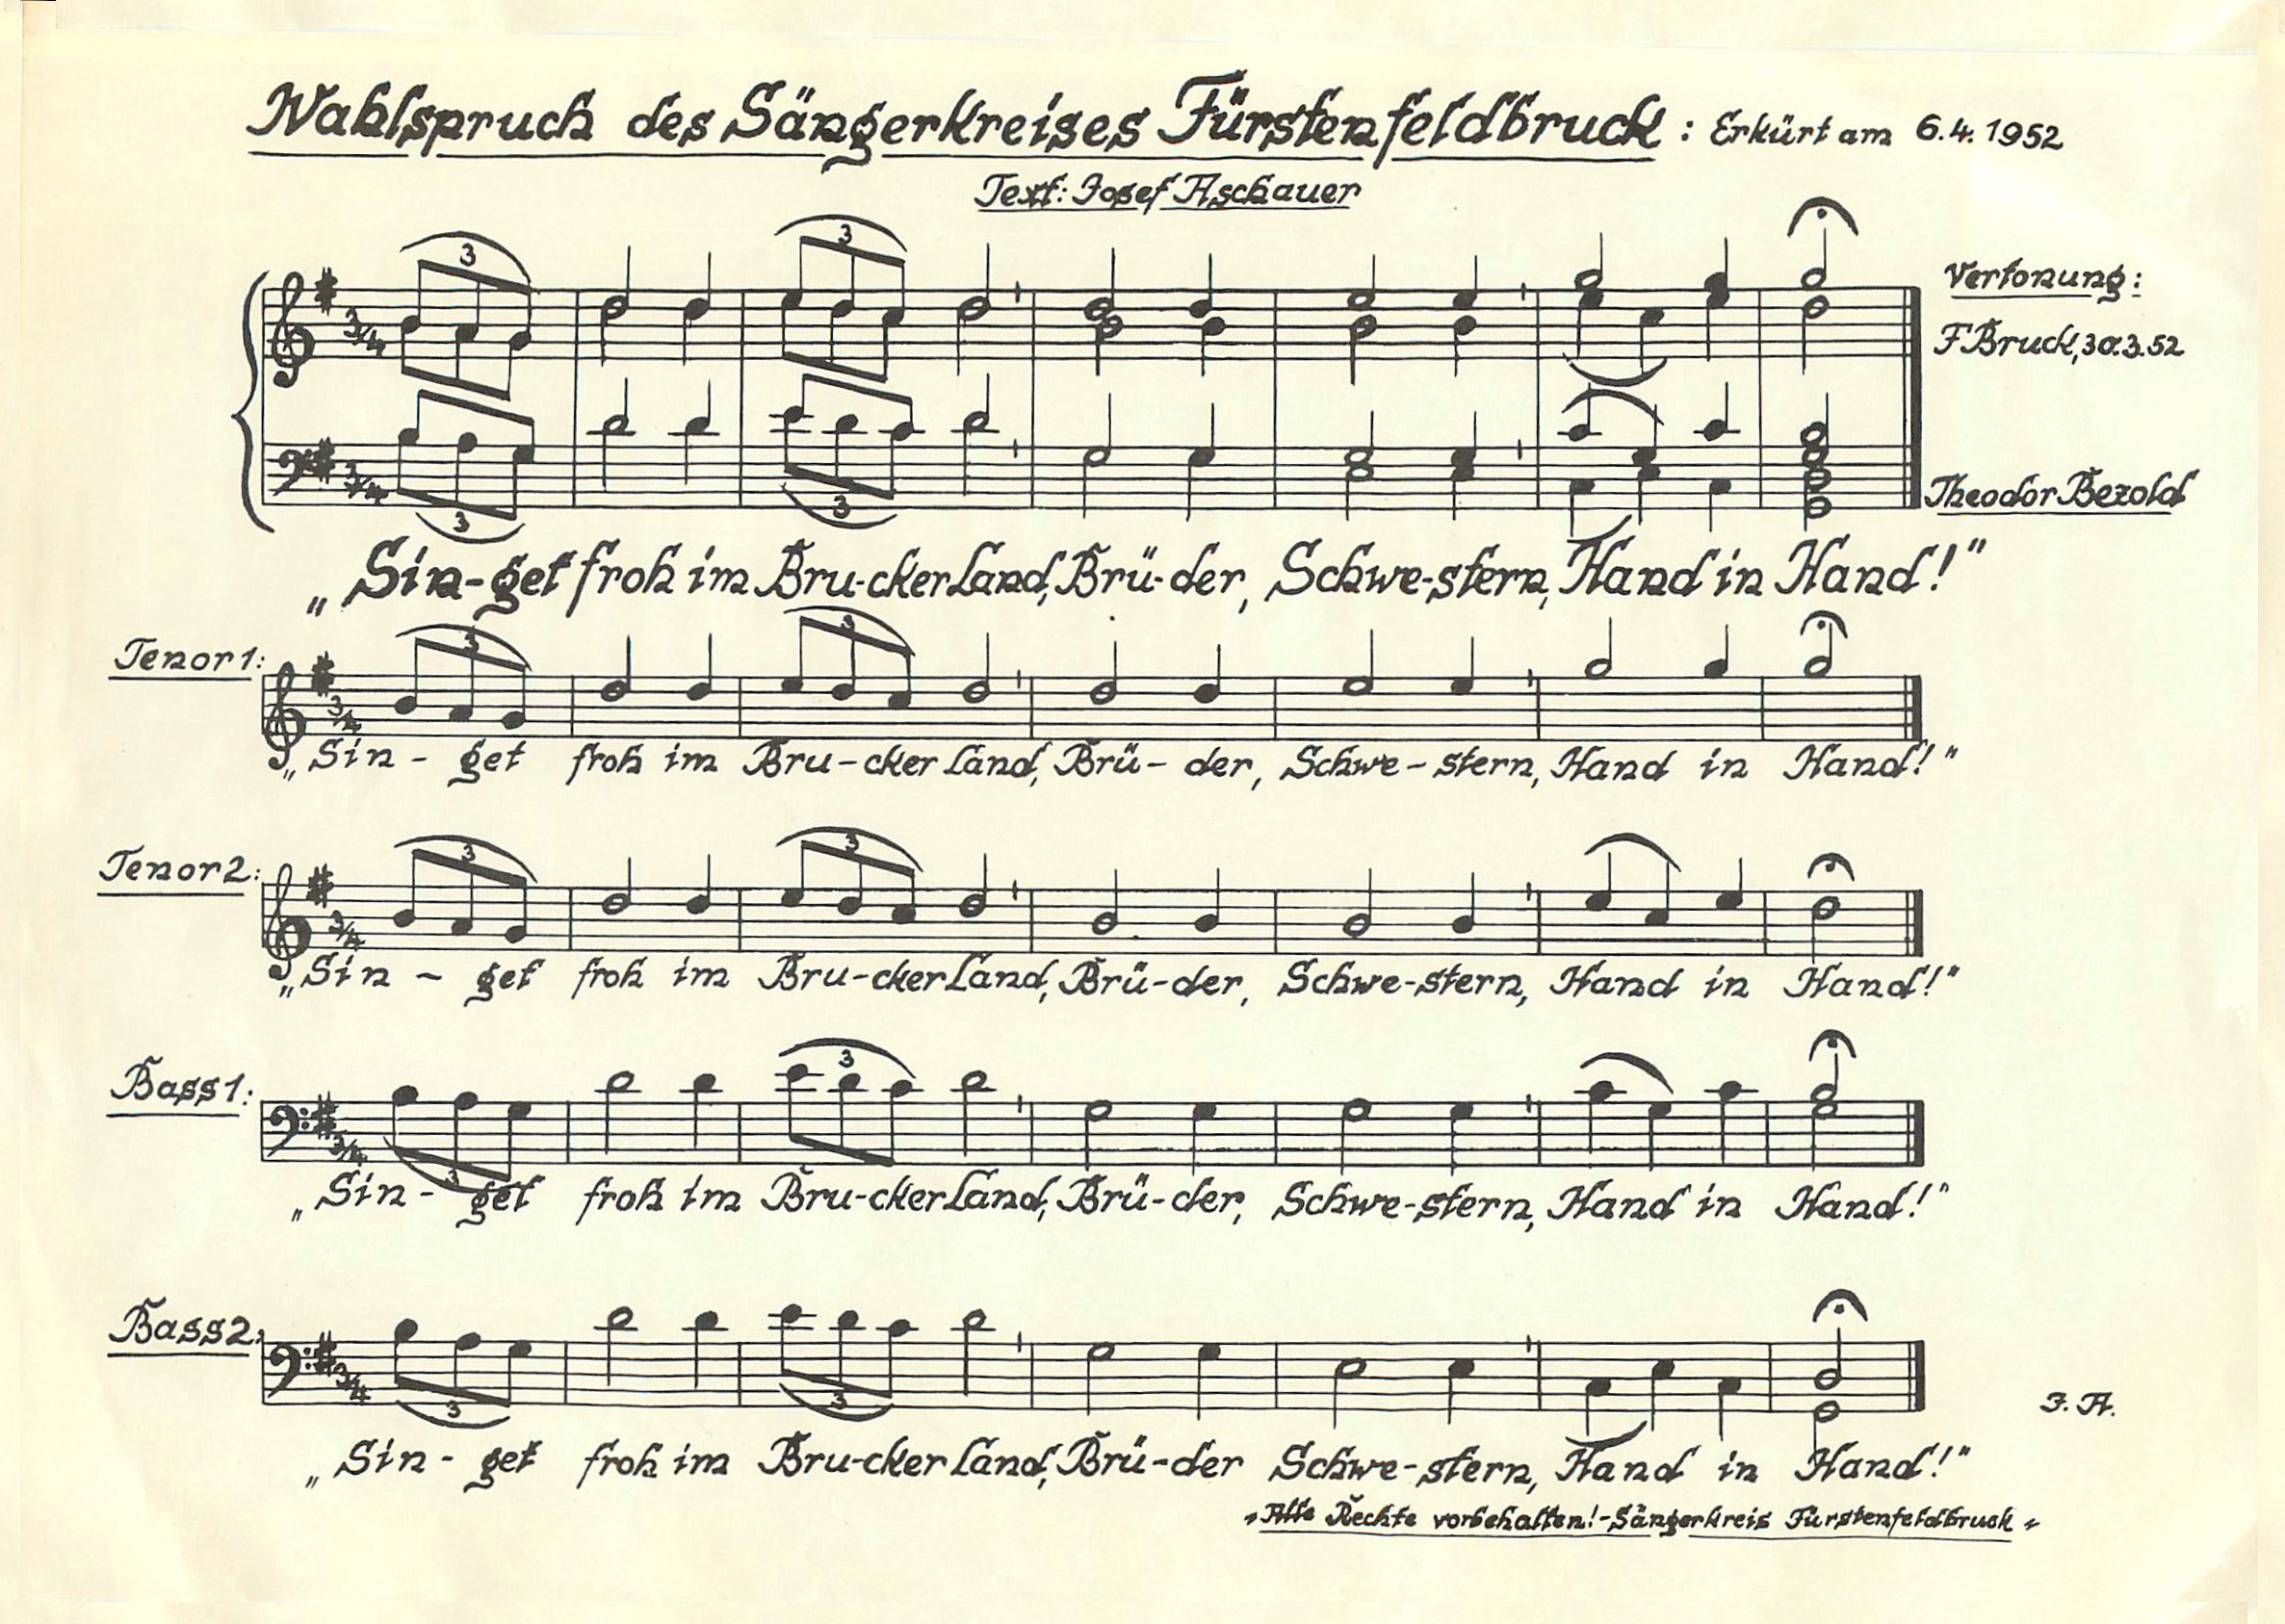 Wahlspruch des Sängerkreises Fürstenfeldbruck: Erkürt am 6.4.1952
Text: Josef Aschauer
3 3
3/4
Vertonung:
F Bruck, 30.3.52
3/4
3 3
Theodor Bezold
„Sin-get froh im Bru-cker Land, Brü-der, Schwe-stern, Hand in Hand!"
Tenor 1:
3 3
3/4
„Sin - get froh im Bru-cker Land, Brü-der, Schwe-stern, Hand in Hand!"
Tenor 2:
3 3
3/4
„Sin - get froh im Bru-cker Land, Brü-der, Schwe-stern, Hand in Hand!"
Bass 1:
3
3/4
3
„Sin - get froh im Bru-cker Land, Brü-der, Schwe-stern, Hand in Hand!"
Bass 2:
3/4
3 3
J. A.
„Sin - get froh im Bru-cker Land, Brü-der Schwe-stern, Hand in Hand!"
„Alle Rechte vorbehalten!-Sängerkreis Fürstenfeldbruck"